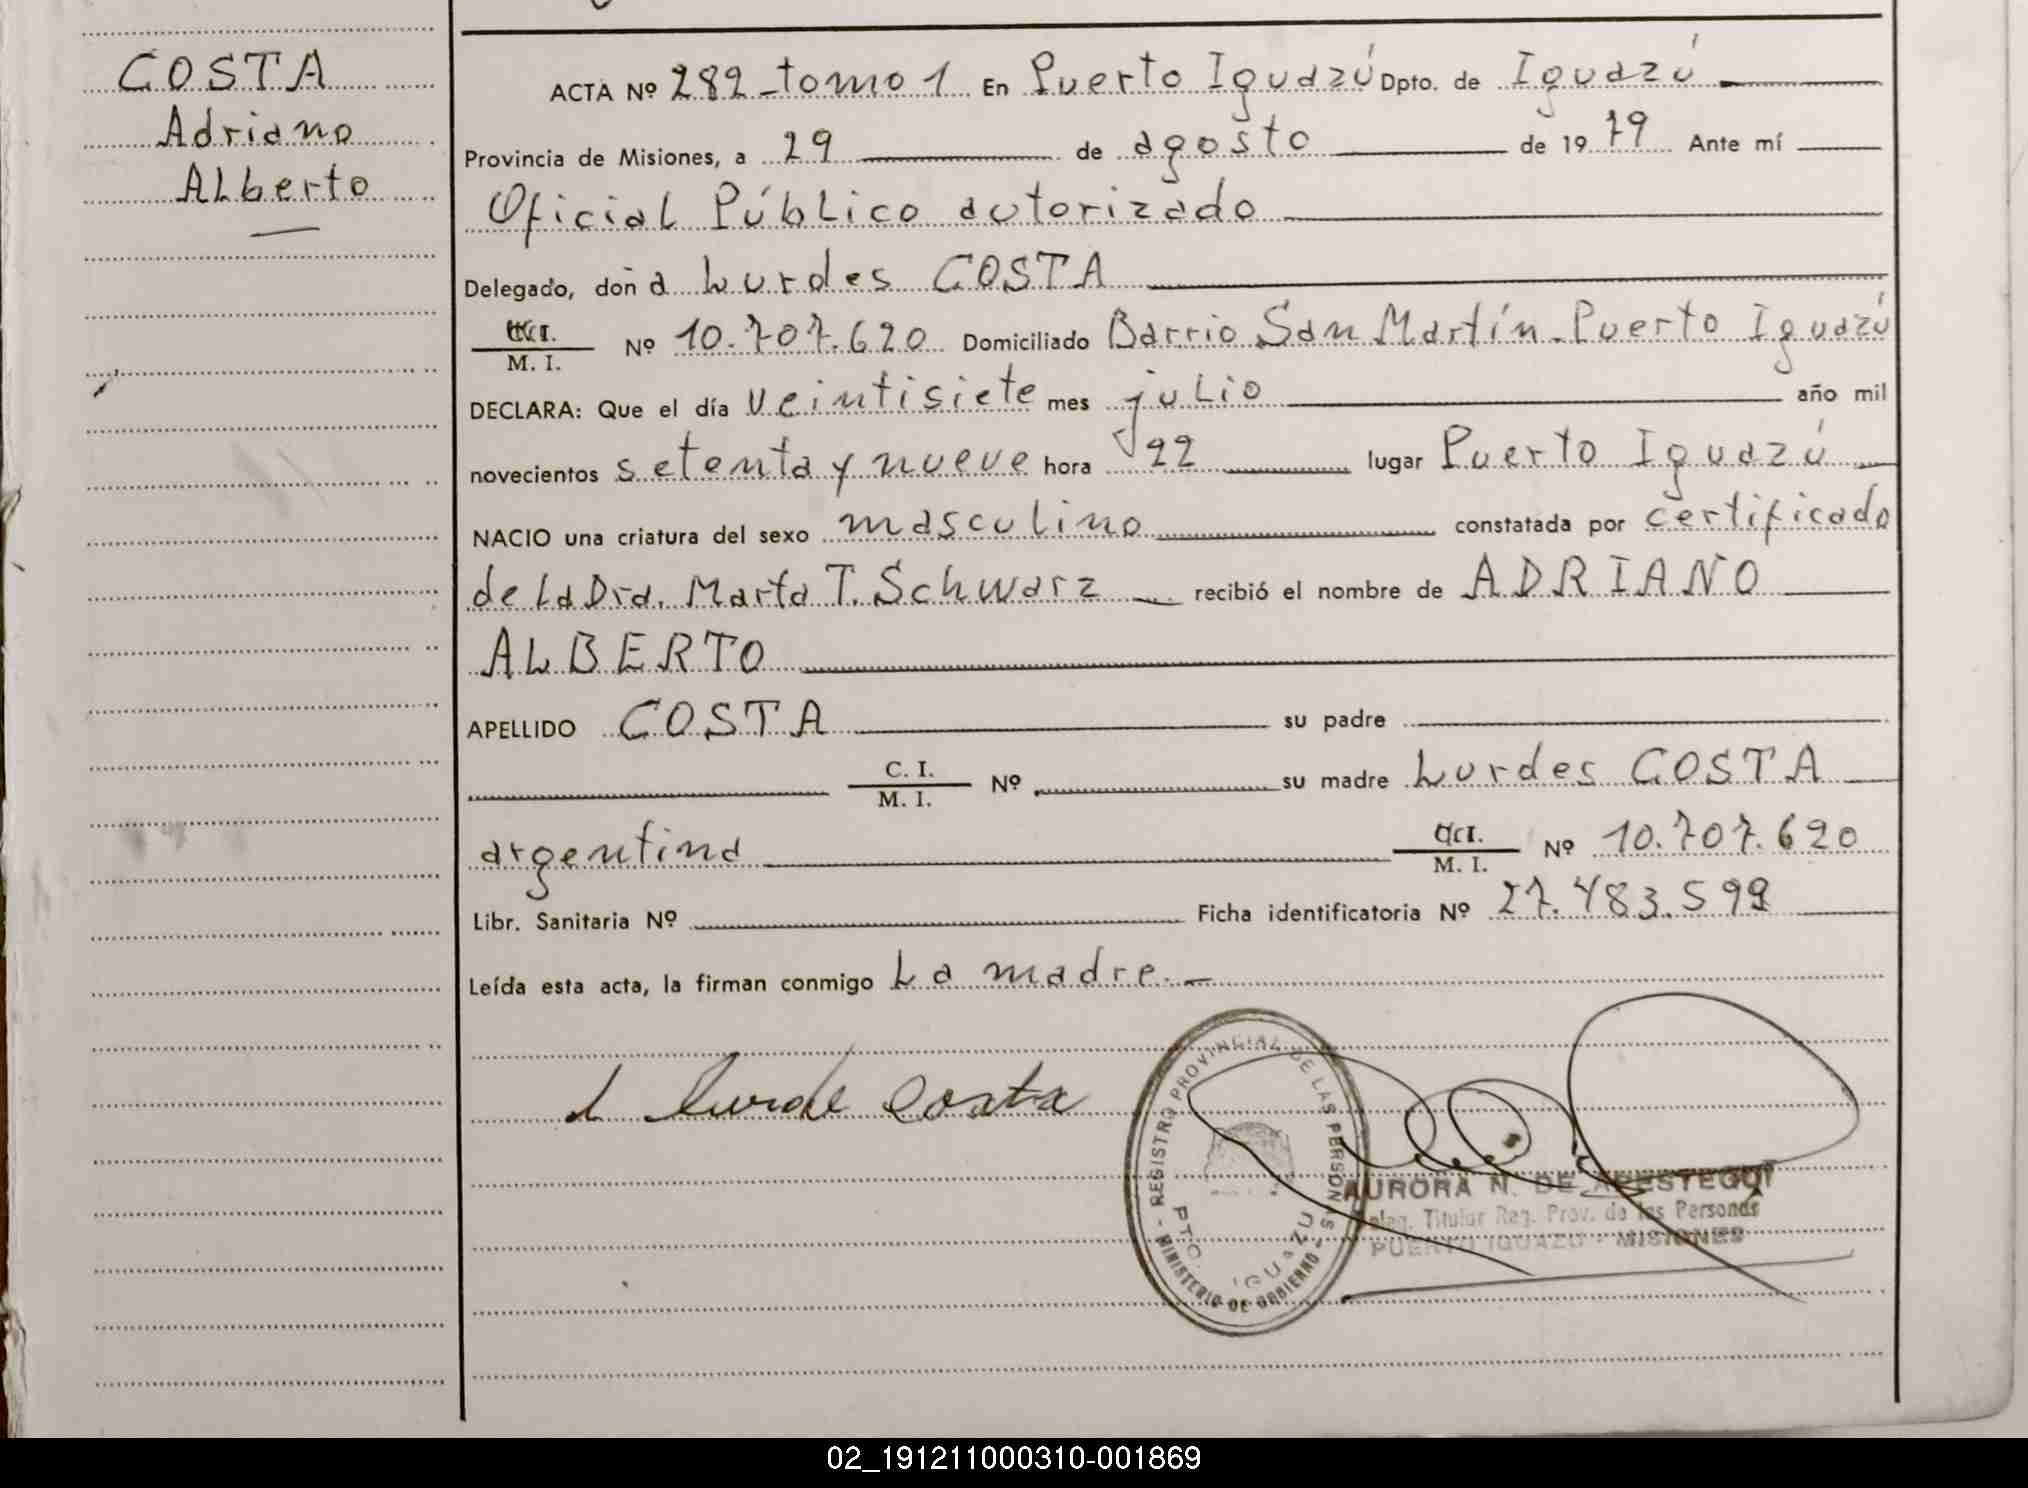 COSTA
Adriano
ALberto
ACTA Nº 282 - tomo 1 En Puerto Iguazú Dpto. de Iguazú
Provincia de Misiones, a 29 de agosto de 1979 Ante mí
Oficial Público autorizado
Delegado, doña Lurdes COSTA
C. I.
M. I. Nº 10.707.620 Domiciliado Barrio San Martín - Puerto Iguazú
DECLARA: Que el día veintisiete mes julio año mil
novecientos setenta y nueve hora 22 lugar Puerto Iguazú
NACIO una criatura del sexo masculino constatada por certificado
de la Dra. Marta T. Schwarz recibió el nombre de ADRIANO
ALBERTO
APELLIDO COSTA su padre
C. I.
M. I. Nº su madre Lurdes COSTA
argentina C. I.
M. I. Nº 10.707.620
Libr. Sanitaria Nº Ficha identificatoria Nº 27.483.599
Leída esta acta, la firman conmigo La madre.-
Lurde Costa
REGISTRO PROVINCIAL DE LAS PERSONAS
PTO. IGUAZU
MINISTERIO DE GOBIERNO
AURORA N. DE APESTEGUI
Deleg. Titular Reg. Prov. de las Personas
PUERTO IGUAZU - MISIONES
02_191211000310-001869